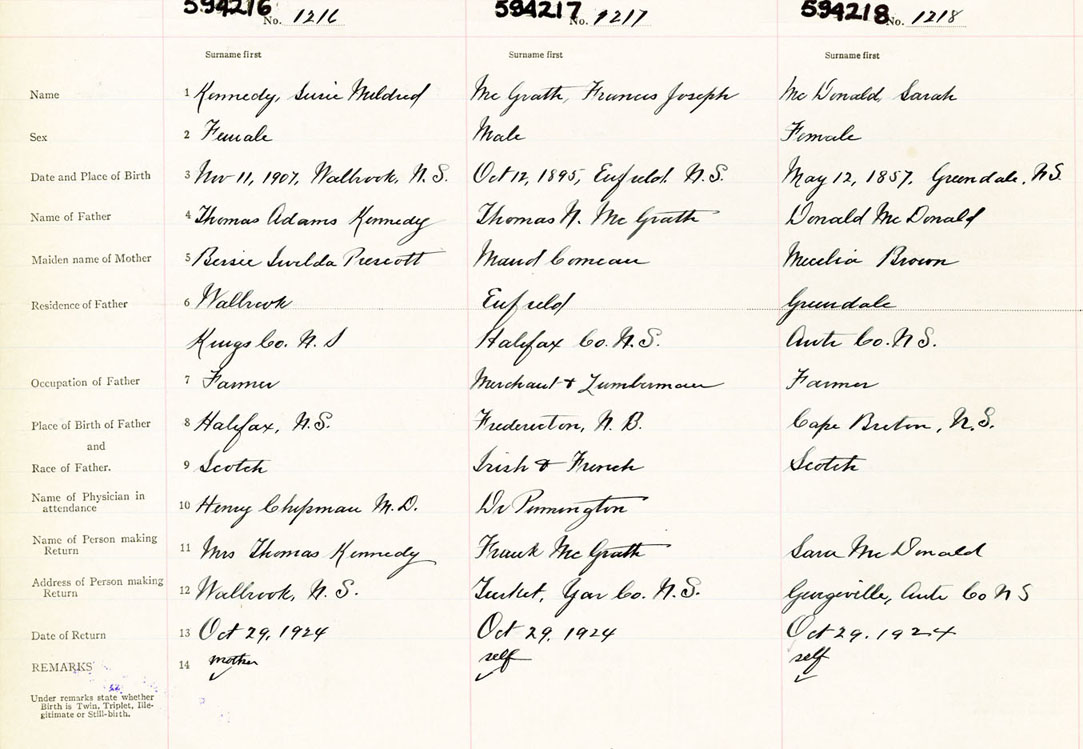 594216 No. 1216 594217 No. 1217 594218 No. 1218
Surname first Surname first Surname first
Name 1 Kennedy, Susie Mildred Mc Grath, Francis Joseph Mc Donald, Sarah
Sex 2 Female Male Female
Date and Place of Birth 3 Nov 11, 1907, Wallbrook, N.S. Oct 12, 1895, Enfield. N.S. May 12, 1857. Greendale, NS
Name of Father 4 Thomas Adams Kennedy Thomas N. Mc Grath Donald Mc Donald
Maiden name of Mother 5 Bessie Prescott Maud Comeau Brown
Residence of Father 6 Wallbrook Enfield Greendale
Kings Co. N.S Halifax Co. N.S. Ante Co. N S.
Occupation of Father 7 Farmer Merchant & Lumberman Farmer
Place of Birth of Father 8 Halifax, N.S. Fredericton, N.B. Cape Breton, N.S.
and
Race of Father. 9 Scotch Irish & French Scotch
Name of Physician in
attendance 10 Henry Chipman M.D. Dr Pennington
Name of Person making
Return 11 Mrs Thomas Kennedy Frank Mc Grath Sara Mc Donald
Address of Person making
Return 12 Wallbrook, N.S. Tusket, Yar Co. N.S. Georgeville, Ante Co N S
Date of Return 13 Oct 29, 1924 Oct 29. 1924 Oct 29. 1924
REMARKS 14 mother self self
Under remarks state whether
Birth is Twin, Triplet, Ille-
gitimate or Still-birth.